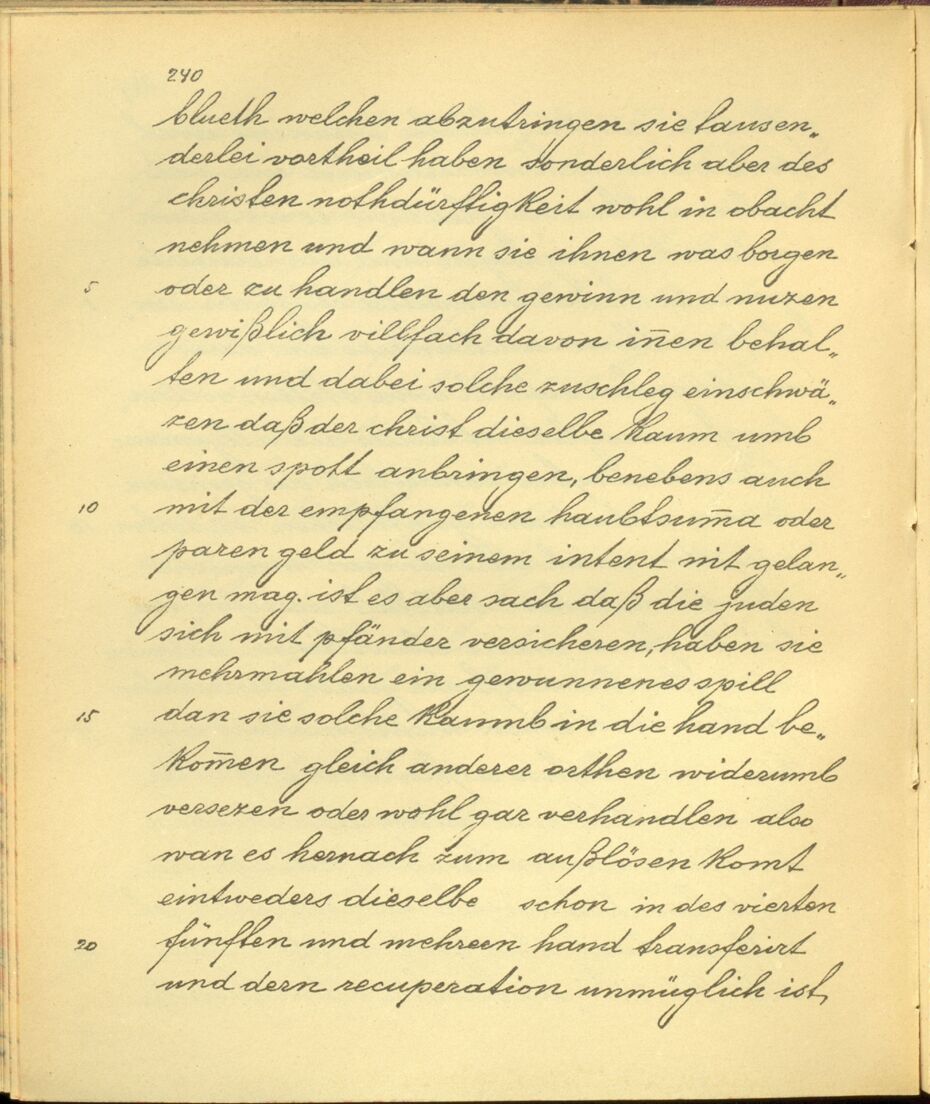 240
blueth welchen abzutringen sie tausen„
derlei vortheil haben sonderlich aber des
christen nothdürfftigkeit wohl in obacht
nehmen und wann sie ihnen was borgen
5 oder zu handlen den gewinn und nuzen
gewißlich villfach davon iñen behal„
ten und dabei solche zuschleg einschwä„
zen daß der christ dieselbe kaum umb
einen spott anbringen, benebens auch
10 mit der empfangenen haubtsum̄a oder
paren geld zu seinem intent nit gelan„
gen mag. ist es aber sach daß die juden
sich mit pfänder versicheren, haben sie
mehrmahlen ein gewunnenes spill
15 dan sie solche kaumb in die hand be„
kom̄en gleich anderer orthen widerumb
versezen oder wohl gar verhandlen also
wan es hernach zum außlösen komt
eintweders dieselbe schon in des vierten
20 fünften und mehreen hand transferirt
und dern recuperation unmüglich ist,